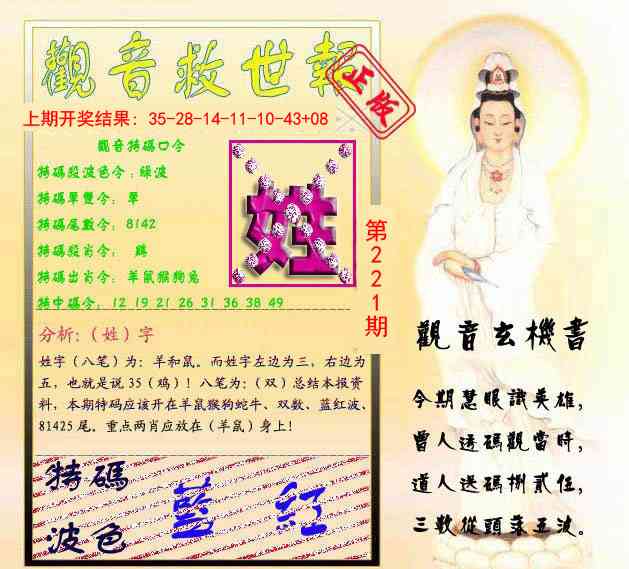 觀音救世報
正版
上期开奖结果：35-28-14-11-10-43+08
觀音特碼口令
特碼段波色令：綠波
特碼單雙令：單
特碼尾數令：8142
特碼段肖令：鷄
特碼出肖令：羊鼠猴狗兔
特中碼令：12 19 21 26 31 36 38 49
姓
第221期
分析：（姓）字
姓字（八笔）为：羊和鼠。而姓字左边为三，右边为
五，也就是说 35（鸡）！八笔为：（双）总结本报资
料，本期特码应该开在羊鼠猴狗蛇牛、双数、蓝红波、
81425 尾。重点两肖应放在（羊鼠）身上！
特碼
波色
藍 紅
觀音玄機書
今期慧眼識英雄，
曾人透碼觀當時，
道人送碼捌貳伍，
三數從頭来五波。